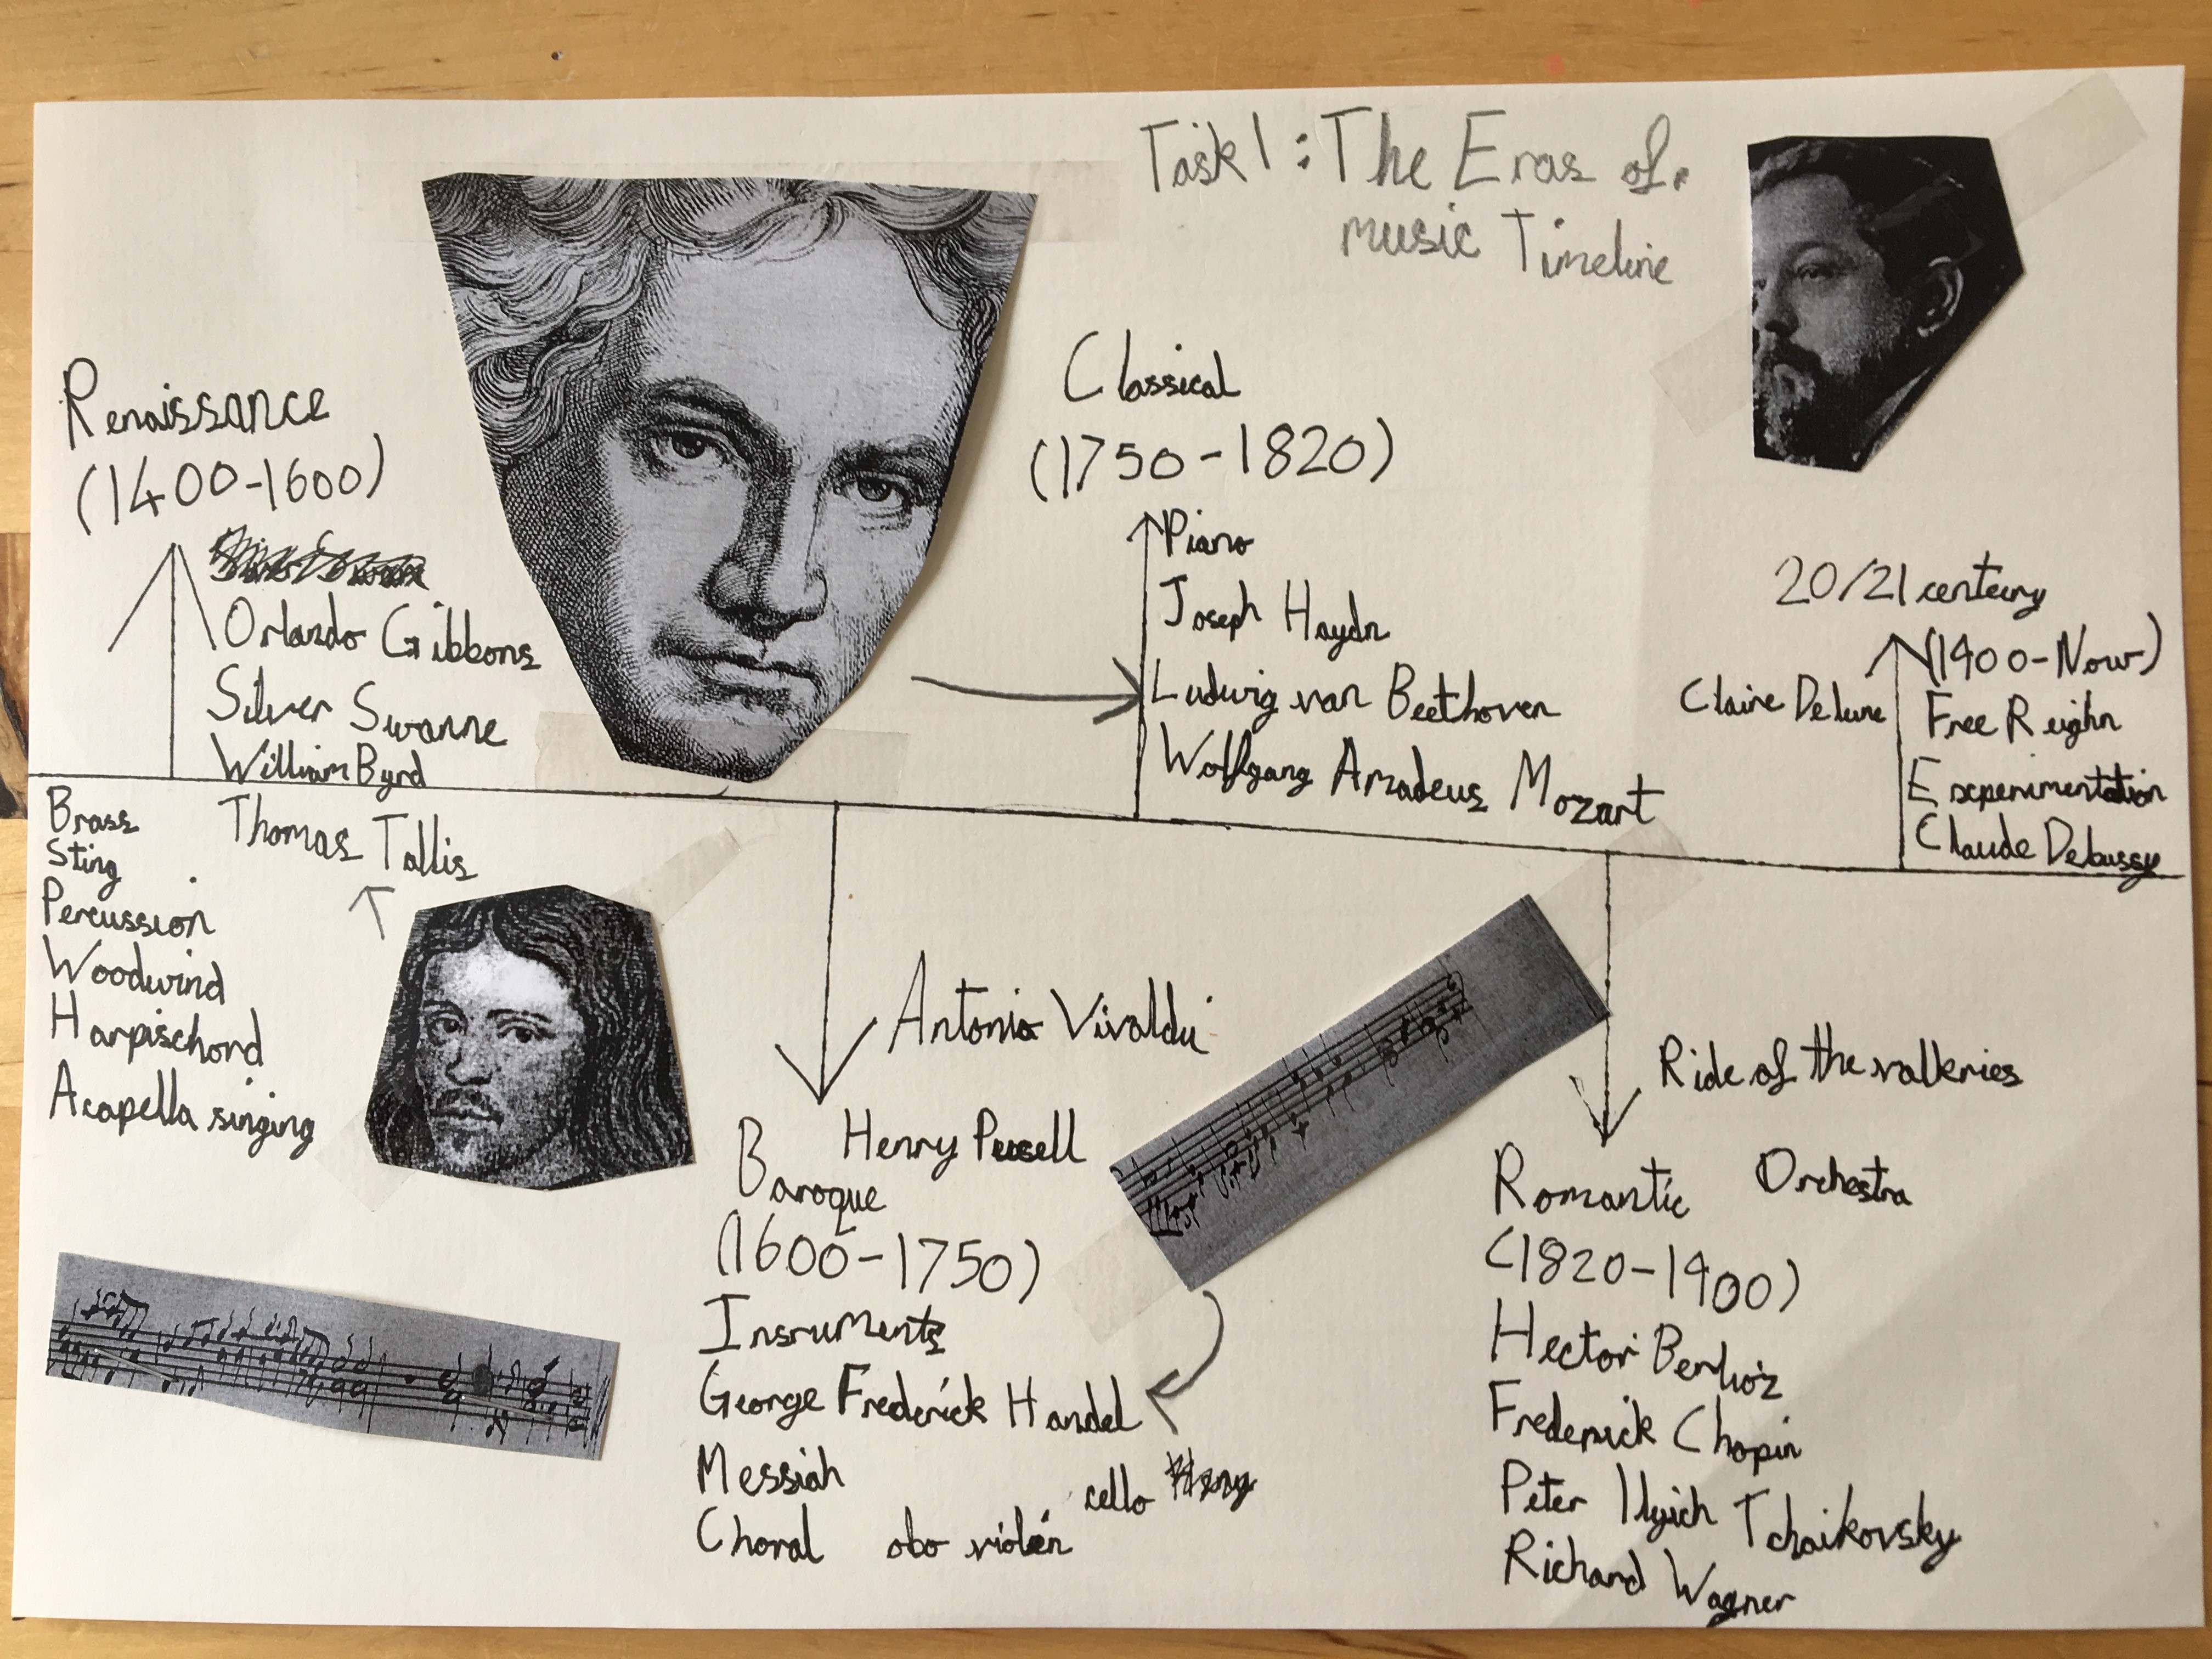 Task 1: The Eras of.
music Timeline
Renaissance
(1400-1600)
Orlando Gibbons
Silver Swanne
William Byrd
Thomas Tallis
Brass
Sting
Percussion
Woodwind
Harpischord
Acapella singing
Classical
(1750-1820)
Piano
Joseph Haydn
Ludwig van Beethoven
Wolfgang Amadeus Mozart
20/21 centeury
(1900-Now)
Claire Delune
Free Reighn
Experimentation
Claude Debussy
Antonio Vivaldi
Henry Pucell
Baroque
(1600-1750)
Insruments
George Frederick Handel
Messiah
cello
Choral obo violin
Ride of the valkeries
Romantic Orchestra
(1820-1900)
Hector Berlioz
Frederick Chopin
Peter Ilyich Tchaikovsky
Richard Wagner